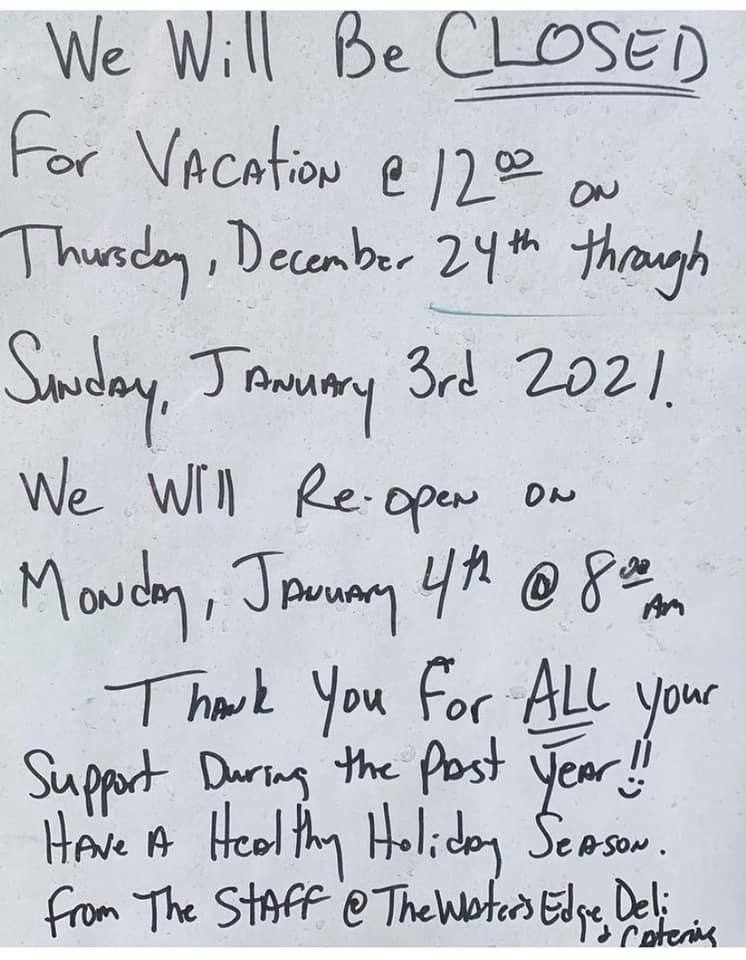 We Will Be CLOSED
For VACATION @ 12 00 ON
Thursday, December 24th through
SUNDAY, JANUARY 3rd 2021.
We Will Re-open ON
Monday, January 4th @ 8 00 Am
Thank You For ALL your
Support During the Past Year!!
HAVE A Healthy Holiday SEASON.
From The STAFF @ The Water's Edge Deli
& Catering